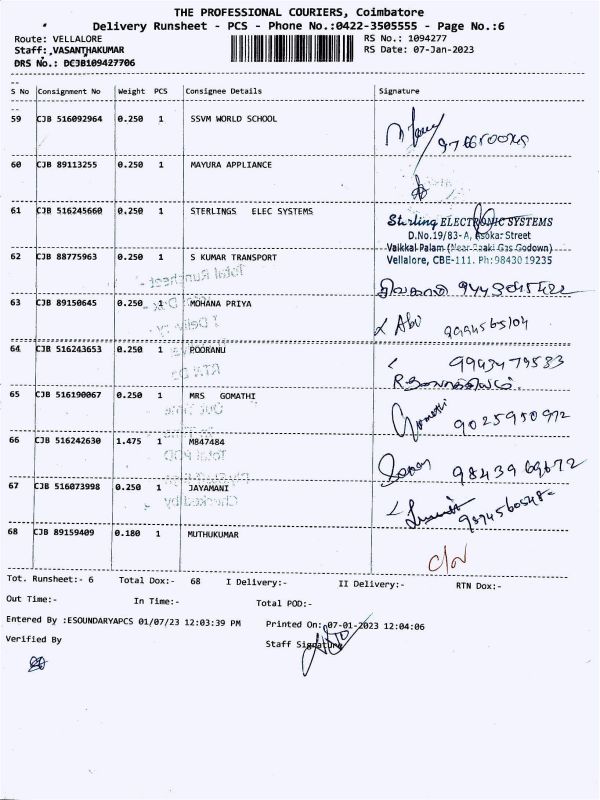 THE PROFESSIONAL COURIERS, Coimbatore
Delivery Runsheet - PCS - Phone No.:0422-3505555 - Page No.:6
Route: VELLALORE RS No.: 1094277
Staff: VASANTHAKUMAR RS Date: 07-Jan-2023
DRS No.: DCJB109427706
S No Consignment No Weight PCS Consignee Details Signature
59 CJB 516092964 0.250 1 SSVM WORLD SCHOOL
60 CJB 89113255 0.250 1 MAYURA APPLIANCE
61 CJB 516245660 0.250 1 STERLINGS ELEC SYSTEMS
Sterling ELECTRONIC SYSTEMS
D.No.19/83-A, Asokar Street
Vaikkal Palam (Near Baaki Gas Godown)
Vellalore, CBE-111. Ph:98430 19235
62 CJB 88775963 0.250 1 S KUMAR TRANSPORT
Total Runsheet :-
63 CJB 89150645 0.250 1 MOHANA PRIYA
I Delivery :-
64 CJB 516243653 0.250 1 POORANU
9943479583
65 CJB 516190067 0.250 1 MRS GOMATHI
Gomathi 9025950972
66 CJB 516242630 1.475 1 M847484
Total POD
9843969672
67 CJB 516073998 0.250 1 JAYAMANI
Checked by
68 CJB 89159409 0.180 1 MUTHUKUMAR
Tot. Runsheet:- 6 Total Dox:- 68 I Delivery:- II Delivery:- RTN Dox:-
Out Time:- In Time:- Total POD:-
Entered By :ESOUNDARYAPCS 01/07/23 12:03:39 PM Printed On: 07-01-2023 12:04:06
Verified By Staff Signature